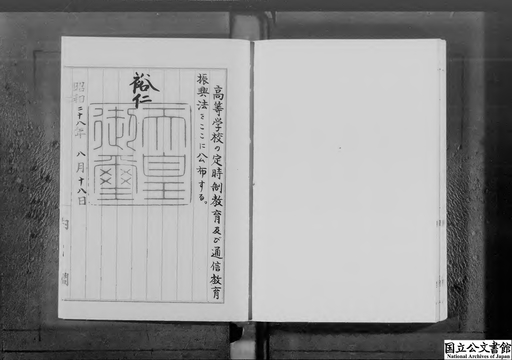 高等学校の定時制教育及び通信教育
振興法をここに公布する。
裕仁
天皇
御璽
昭和二十八年八月十八日
内閣
国立公文書館
National Archives of Japan